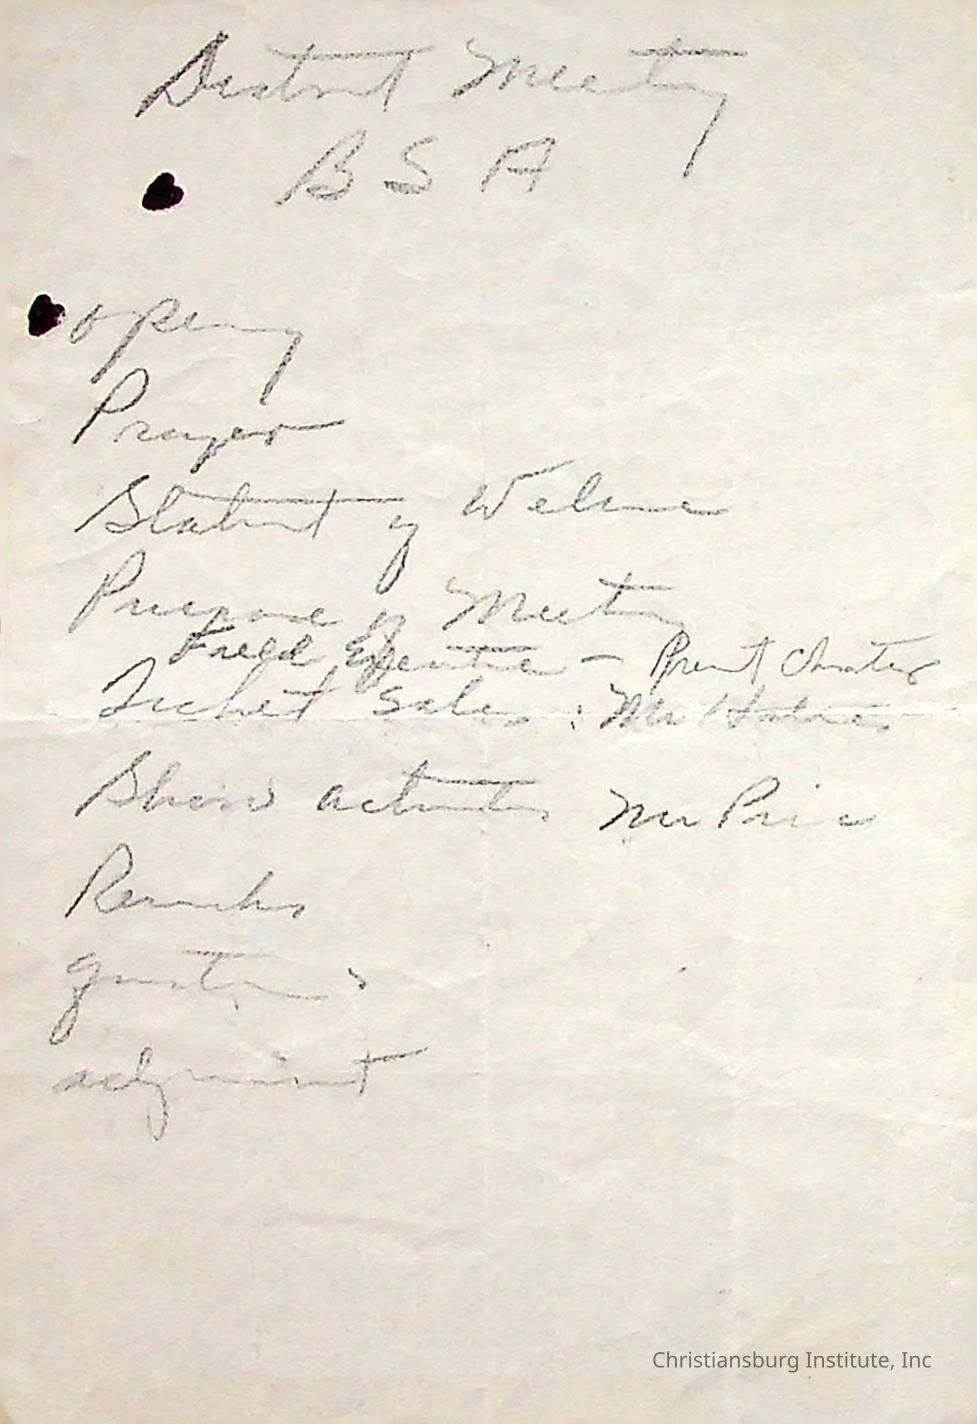 District Meeting
B S A
opening
Prayer
Statement of Welcome
Purpose of Meeting
Field Executive - Present Charter
Ticket Sales : Mr Holmes
Show activities Mr Price
Remarks
questions
adjournment
Christiansburg Institute, Inc